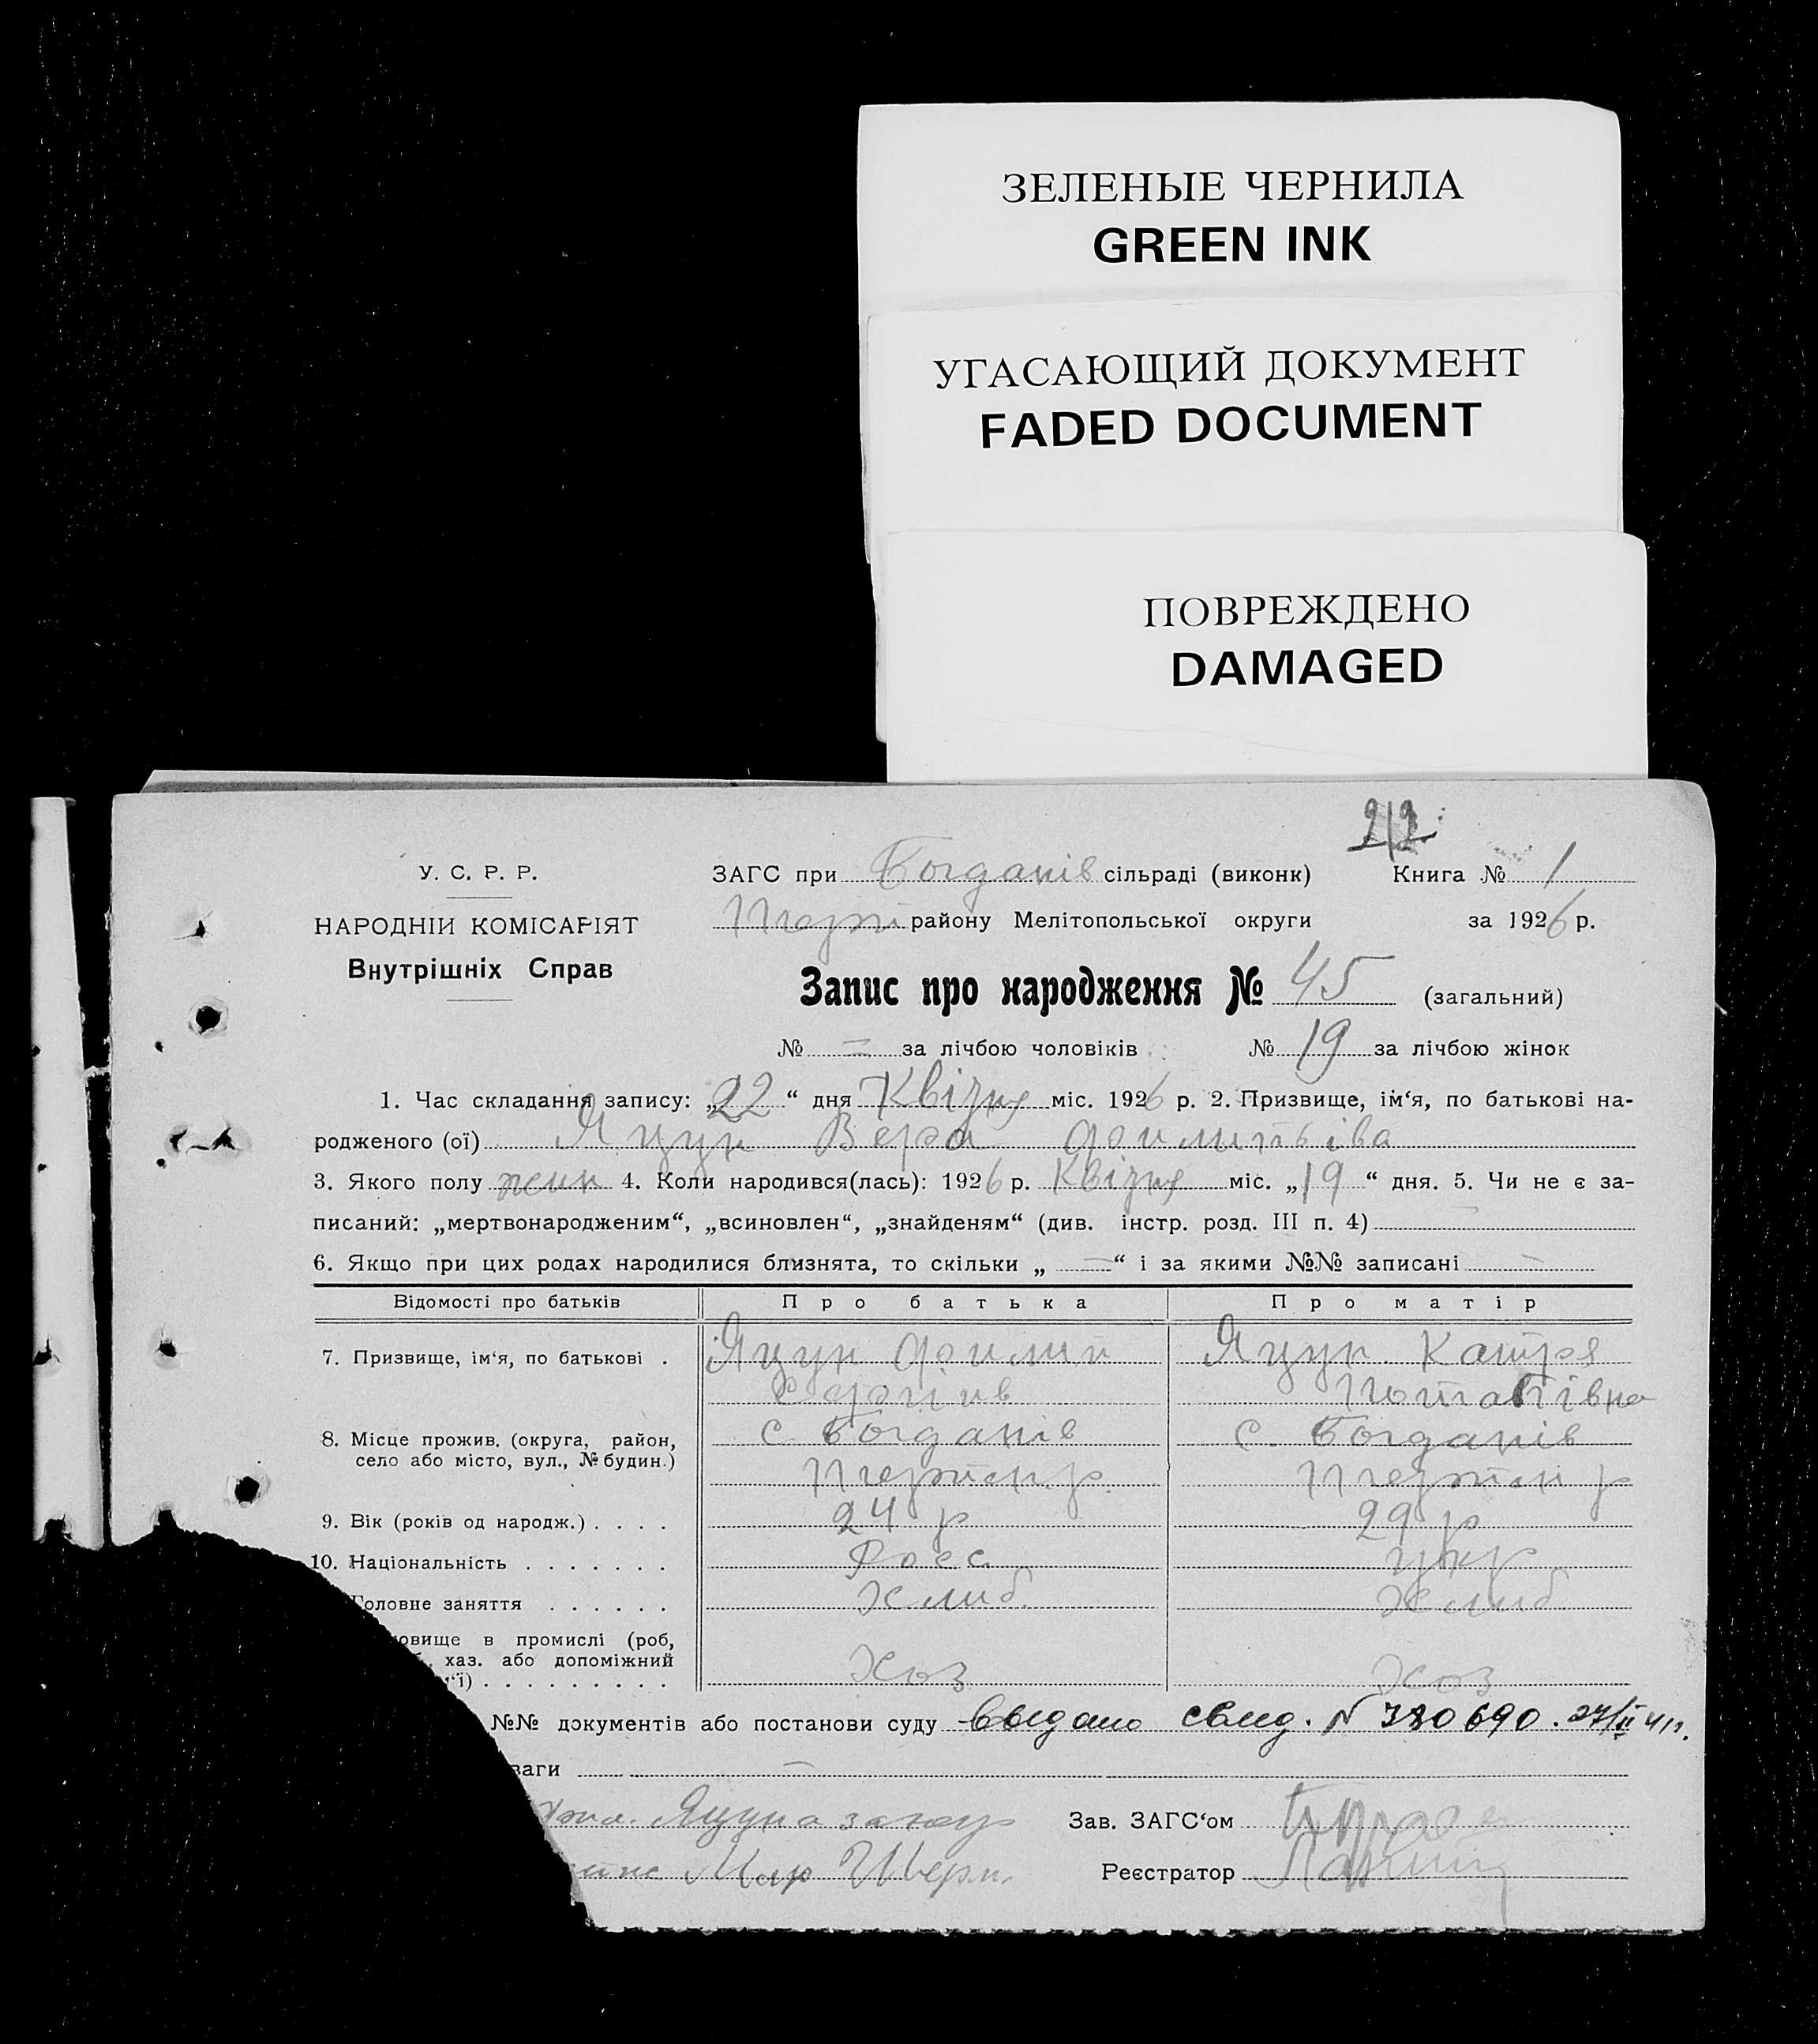 ЗЕЛЕНЫЕ ЧЕРНИЛА
GREEN INK
УГАСАЮЩИЙ ДОКУМЕНТ
FADED DOCUMENT
ПОВРЕЖДЕНО
DAMAGED
212
У. С. Р. Р.
НАРОДНІЙ КОМІСАРІЯТ
Внутрішніх Справ
ЗАГС при Богданів сільраді (виконк) Книга № 1
району Мелітопольської округи за 1926 р.
Запис про народження № 45 (загальний)
№ — за лічбою чоловіків № 19 за лічбою жінок
1. Час складання запису: „22“ дня Квізня міс. 1926 р. 2. Призвище, ім‘я, по батькові на-
родженого (ої) Яцун Вера
3. Якого полу жин 4. Коли народився(лась): 1926 р. Квізня міс. „19“ дня. 5. Чи не є за-
писаний: „мертвонародженим“, „всиновлен“, „знайденям“ (див. інстр. розд. III п. 4) —
6. Якщо при цих родах народилися близнята, то скільки „—“ і за якими №№ записані —
Відомості про батьків Про батька Про матір
7. Призвище, ім‘я, по батькові . Яцун Филип Яцун Катря
8. Місце прожив. (округа, район, с Богданів с. Богданів
село або місто, вул., № будин.)
9. Вік (років од народж.) . . . . 24 р 29 р
10. Національність . . . . . . . Росс укр
Головне заняття . . . . . . Хлиб. Хлиб
овище в промислі (роб,
хаз. або допоміжний
‘ї) . . . . . . . . . Хоз Хоз
№№ документів або постанови суду Выдано свид. N 780690. 27/II 41г.
ваги —
Яцуна Зав. ЗАГС‘ом
Мар Реєстратор